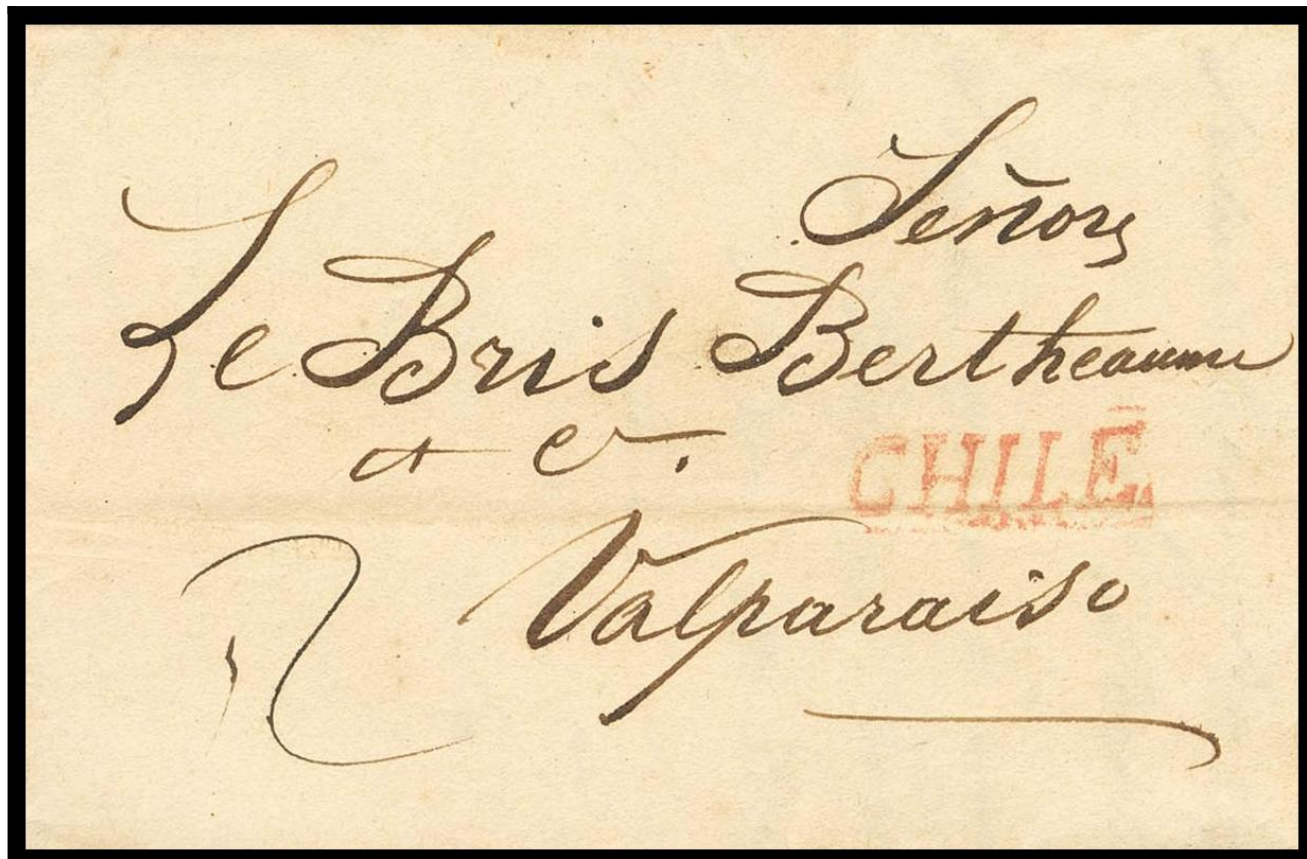 Señores
Le Bris Bertheaume
et Cie.
CHILE
Valparaiso
2